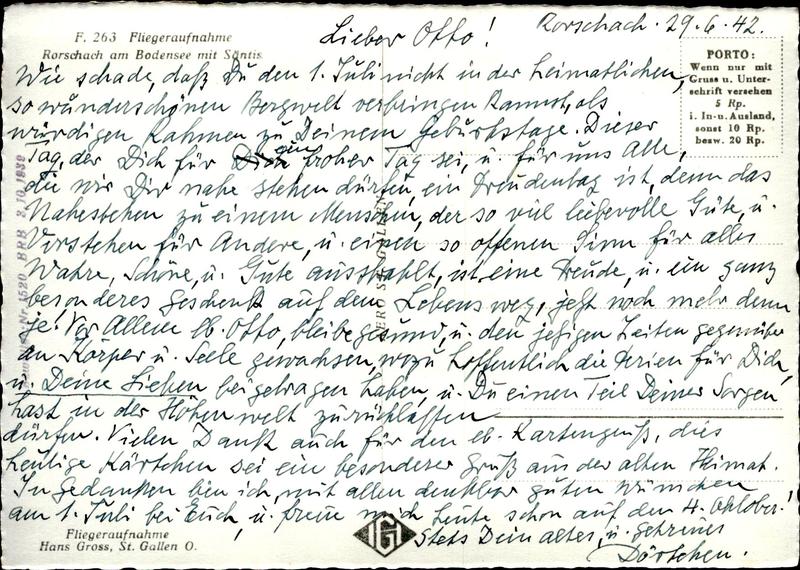 F. 263 Fliegeraufnahme
Rorschach am Bodensee mit Säntis
Rorschach. 29.6.42.
Lieber Otto!
PORTO:
Wenn nur mit
Gruss u. Unter-
schrift versehen
5 Rp.
i. In- u. Ausland,
sonst 10 Rp.
bezw. 20 Rp.
Wie schade, daß Du den 1. Juli nicht in der heimatlichen,
so wunderschönen Bergwelt verbringen kannst, als
würdigen Rahmen zu Deinem Geburtstage. Dieser
Tag, der Dich für ein froher Tag sei, u. für uns Alle,
die wir Dir nahe stehen dürfen, ein Freudentag ist, denn das
Nahestehen zu einem Menschen, der so viel liebevolle Güte, u.
Verstehen für Andere, u. einen so offenen Sinn für alles
Wahre, Schöne, u. Gute ausstrahlt, ist eine Freude, u. ein ganz
besonderes Geschenk auf dem Lebensweg, jetzt noch mehr denn
je! Vor Allem lb. Otto, bleibe gesund, u. den jetzigen Zeiten gegenüber
an Körper u. Seele gewachsen, wozu hoffentlich die Ferien für Dich,
u. Deine Lieben beigetragen haben, u. Du einen Teil Deiner Sorgen
hast in der Höhenwelt zurücklassen
dürfen. Vielen Dank auch für den lb. Kartengruß, dies
heutige Kärtchen sei ein besonderer Gruß aus der alten Heimat.
In Gedanken bin ich, mit allen denkbar guten Wünschen
am 1. Juli bei Euch, u. freue mich heute schon auf den 4. Oktober!
Stets Dein altes, u. getreues
Dörtchen.
Fliegeraufnahme
Hans Gross, St. Gallen O.
1520 BRB 3.10.1939
ST. GALLEN